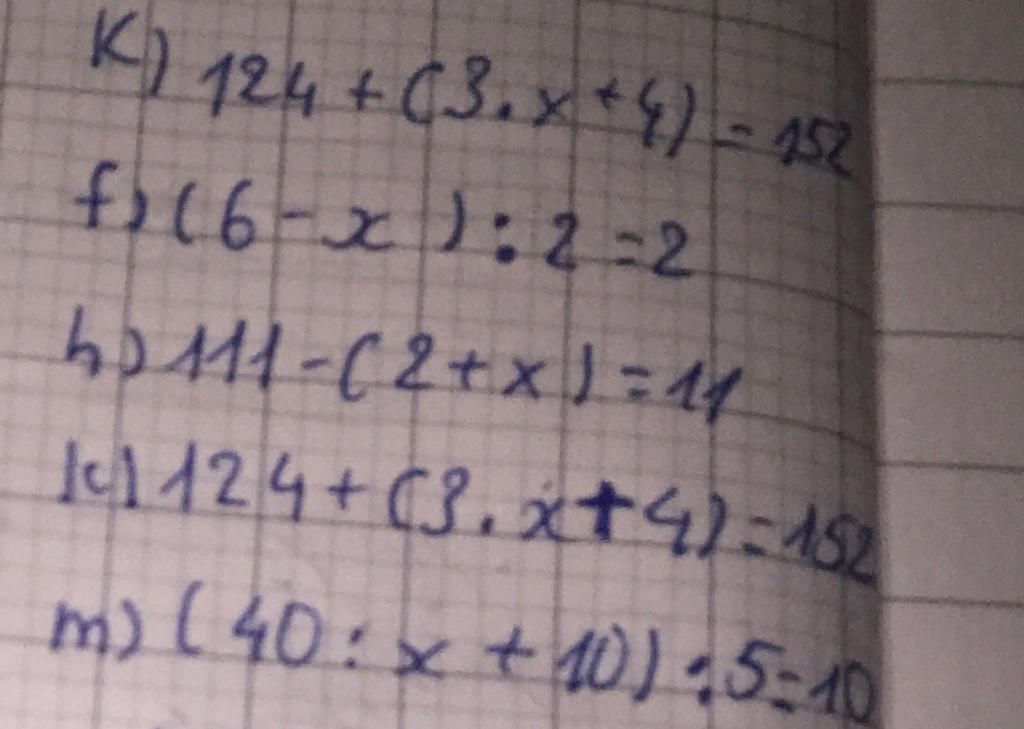 K) 124 + (3 . x + 4) = 152
f) (6 - x) : 2 = 2
h) 111 - (2 + x) = 11
k) 124 + (3 . x + 4) = 152
m) (40 : x + 10) : 5 = 10